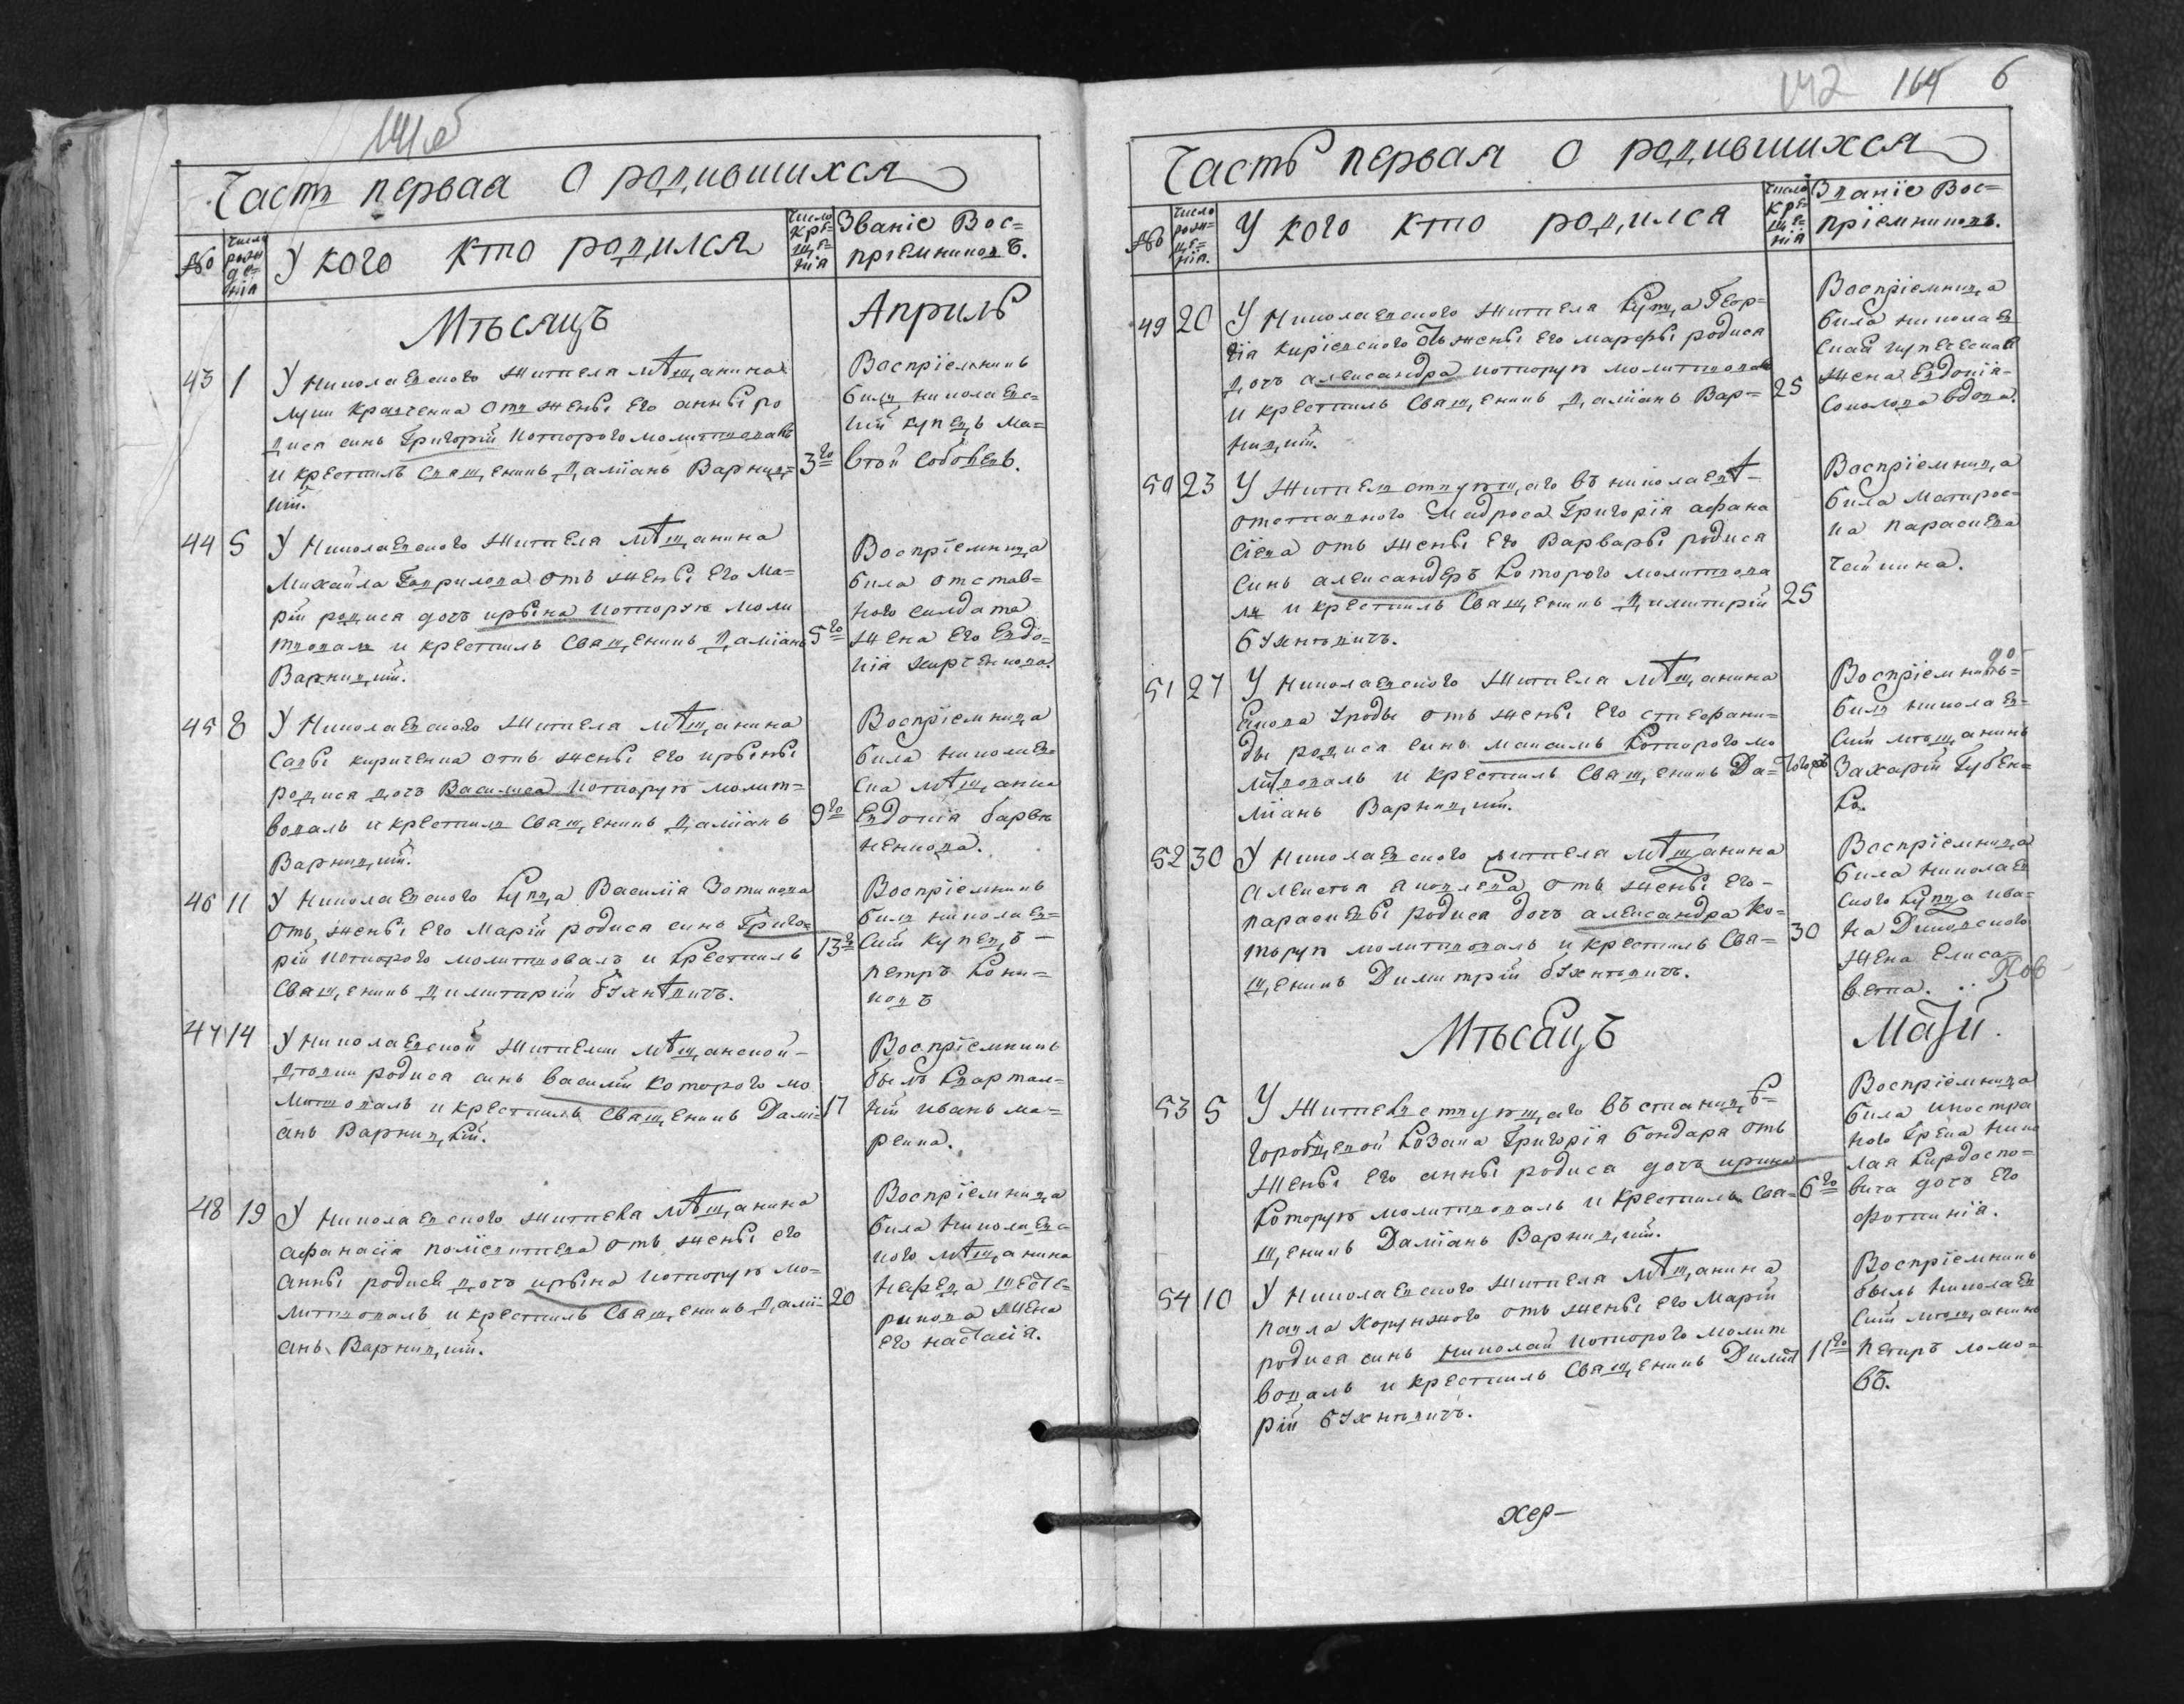 141об
Часть первая О родившихся
№ Число рождения У кого кто родился Число крещения Званіе Вос=
пріемниковъ.
Мѣсяцъ Апрѣль
43 1 У Николаевского жителя мѣщанина
луки Кравченка отъ жены Его анны ро
диса синъ Григорій которого молитвовалъ
и крестилъ Священикъ Даміанъ Варниц= 3го
кій.
Воспріемникъ
билъ николаевс=
кій купецъ Ма=
втѳй
44 5 У Николаевского жителя мѣщанина
Михайла Гаврилова отъ жены Его Ма=
рій родиса дочъ ирына которую моли
твовалъ и крестилъ Священикъ Даміанъ 5го
Варницкій.
Воспріемница
била отстав=
ного солдата
жена Его Евдо=
кія
45 8 У Николаевского жителя мѣщанина
Савы кириченка отъ жены Его ирыны
родиса дочъ Василиса которую молит=
вовалъ и крестилъ Священикъ Даміанъ 9го
Варницкій.
Воспріемница
била николаев
ска мѣщанка
Евдокія барвѣ
ненкова.
46 11 У Николаевского Купца Василія Зотикова
отъ жены Его Марій родиса синъ Григо=
рій которого молитвовалъ и Крестилъ 13го
Священикъ Димитрий бухнѣвичъ.
Воспріемникъ
билъ николаев=
скій купецъ –
петръ Кони=
ковъ
47 14 У Николаевской жителки мѣщанской –
дѣвки родиса синъ василій которого мо
литвовалъ и крестилъ Священикъ Дамі= 17
анъ Варницкій.
Воспріемникъ
былъ Квартал=
ній иванъ ма=
48 19 У Николаевского жителя мѣщанина
афанасія отъ жены его
анны родиса дочъ ирына которую мо=
литвовалъ и крестилъ Священикъ Дамі= 20
анъ Варницкій.
Воспріемница
била николаевс
кого мѣщанина
жена
Его настасія.
142 164 6
Часть первая О родившихся
№ Число рожденія. У кого кто родился Число крещенія Званіе Вос=
пріемниковъ.
49 20 У Николаевского жителя Купца Геор=
гія киріевского отъ жены Его марфы родиса
дочъ александра которую молитвовалъ
и крестилъ Священикъ Даміанъ Вар= 25
ницкій.
Воспріемница
била николаев
ская купеческая
жена Евдокія –
Соколова вдова.
50 23 У жителствующаго въ николаевѣ –
отставного Мадроса Григорія афана
сіева отъ жены Его Варвары родиса
синъ александеръ Которого молитвова
лъ и крестилъ Священикъ Димитрій 25
бухнѣвичъ.
Воспріемница
била Матрос=
ка параскева
Чайкина.
51 27 У Николаевского жителя мѣщанина
отъ жены Его стефани=
ды родиса синъ максимъ Которого мо
литвовалъ и крестилъ Священикъ Да=
міанъ Варницкій.
Воспріемникъ=
билъ николаев=
скій мѣщанинъ
Захарій Губен=
ко.
52 30 У Николаевского жителя мѣщанина
алексѣя яковлева отъ жены Его –
параскевы родиса дочъ александра Ко=
торую молитвовалъ и крестилъ Свя= 30
щеникъ Димитрій бухнѣвичъ.
Воспріемница
била николаев
ского Купца ива=
на
жена Елиса=
вета.
Мѣсацъ Маӏй.
53 5 У жителствующаго въ станицѣ=
Козака Григорія бондаря отъ
жены Его анны родиса дочъ ирина
Которую молитвовалъ и крестилъ Свя= 6го
щеникъ Даміанъ Варницкій.
Воспріемница
била иностра
ного Грека Нико
лая
дочъ Его
фотинія.
54 10 У Николаевского жителя мѣщанина
павла хорунжого отъ жены Его Марій
родиса синъ николай которого молит
вовалъ и крестилъ Священикъ Димит 11го
рій бухнѣвичъ.
Воспріемникъ
былъ Николаев
скій мѣщанинъ
петръ ломо=
въ.
хер–